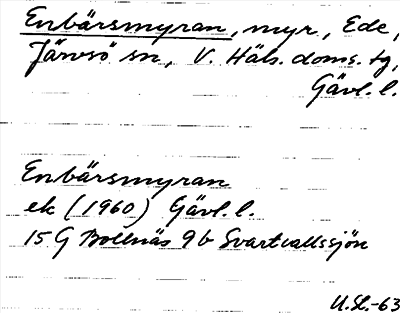 Enbärsmyran, myr, Ede,
Järvsö sn, V. Häls. doms. tg,
Gävl. l.
Enbärsmyran
ek (1960) Gävl. l.
15 G Bollnäs 9 b Svartvallssjön
U.Sl.-63